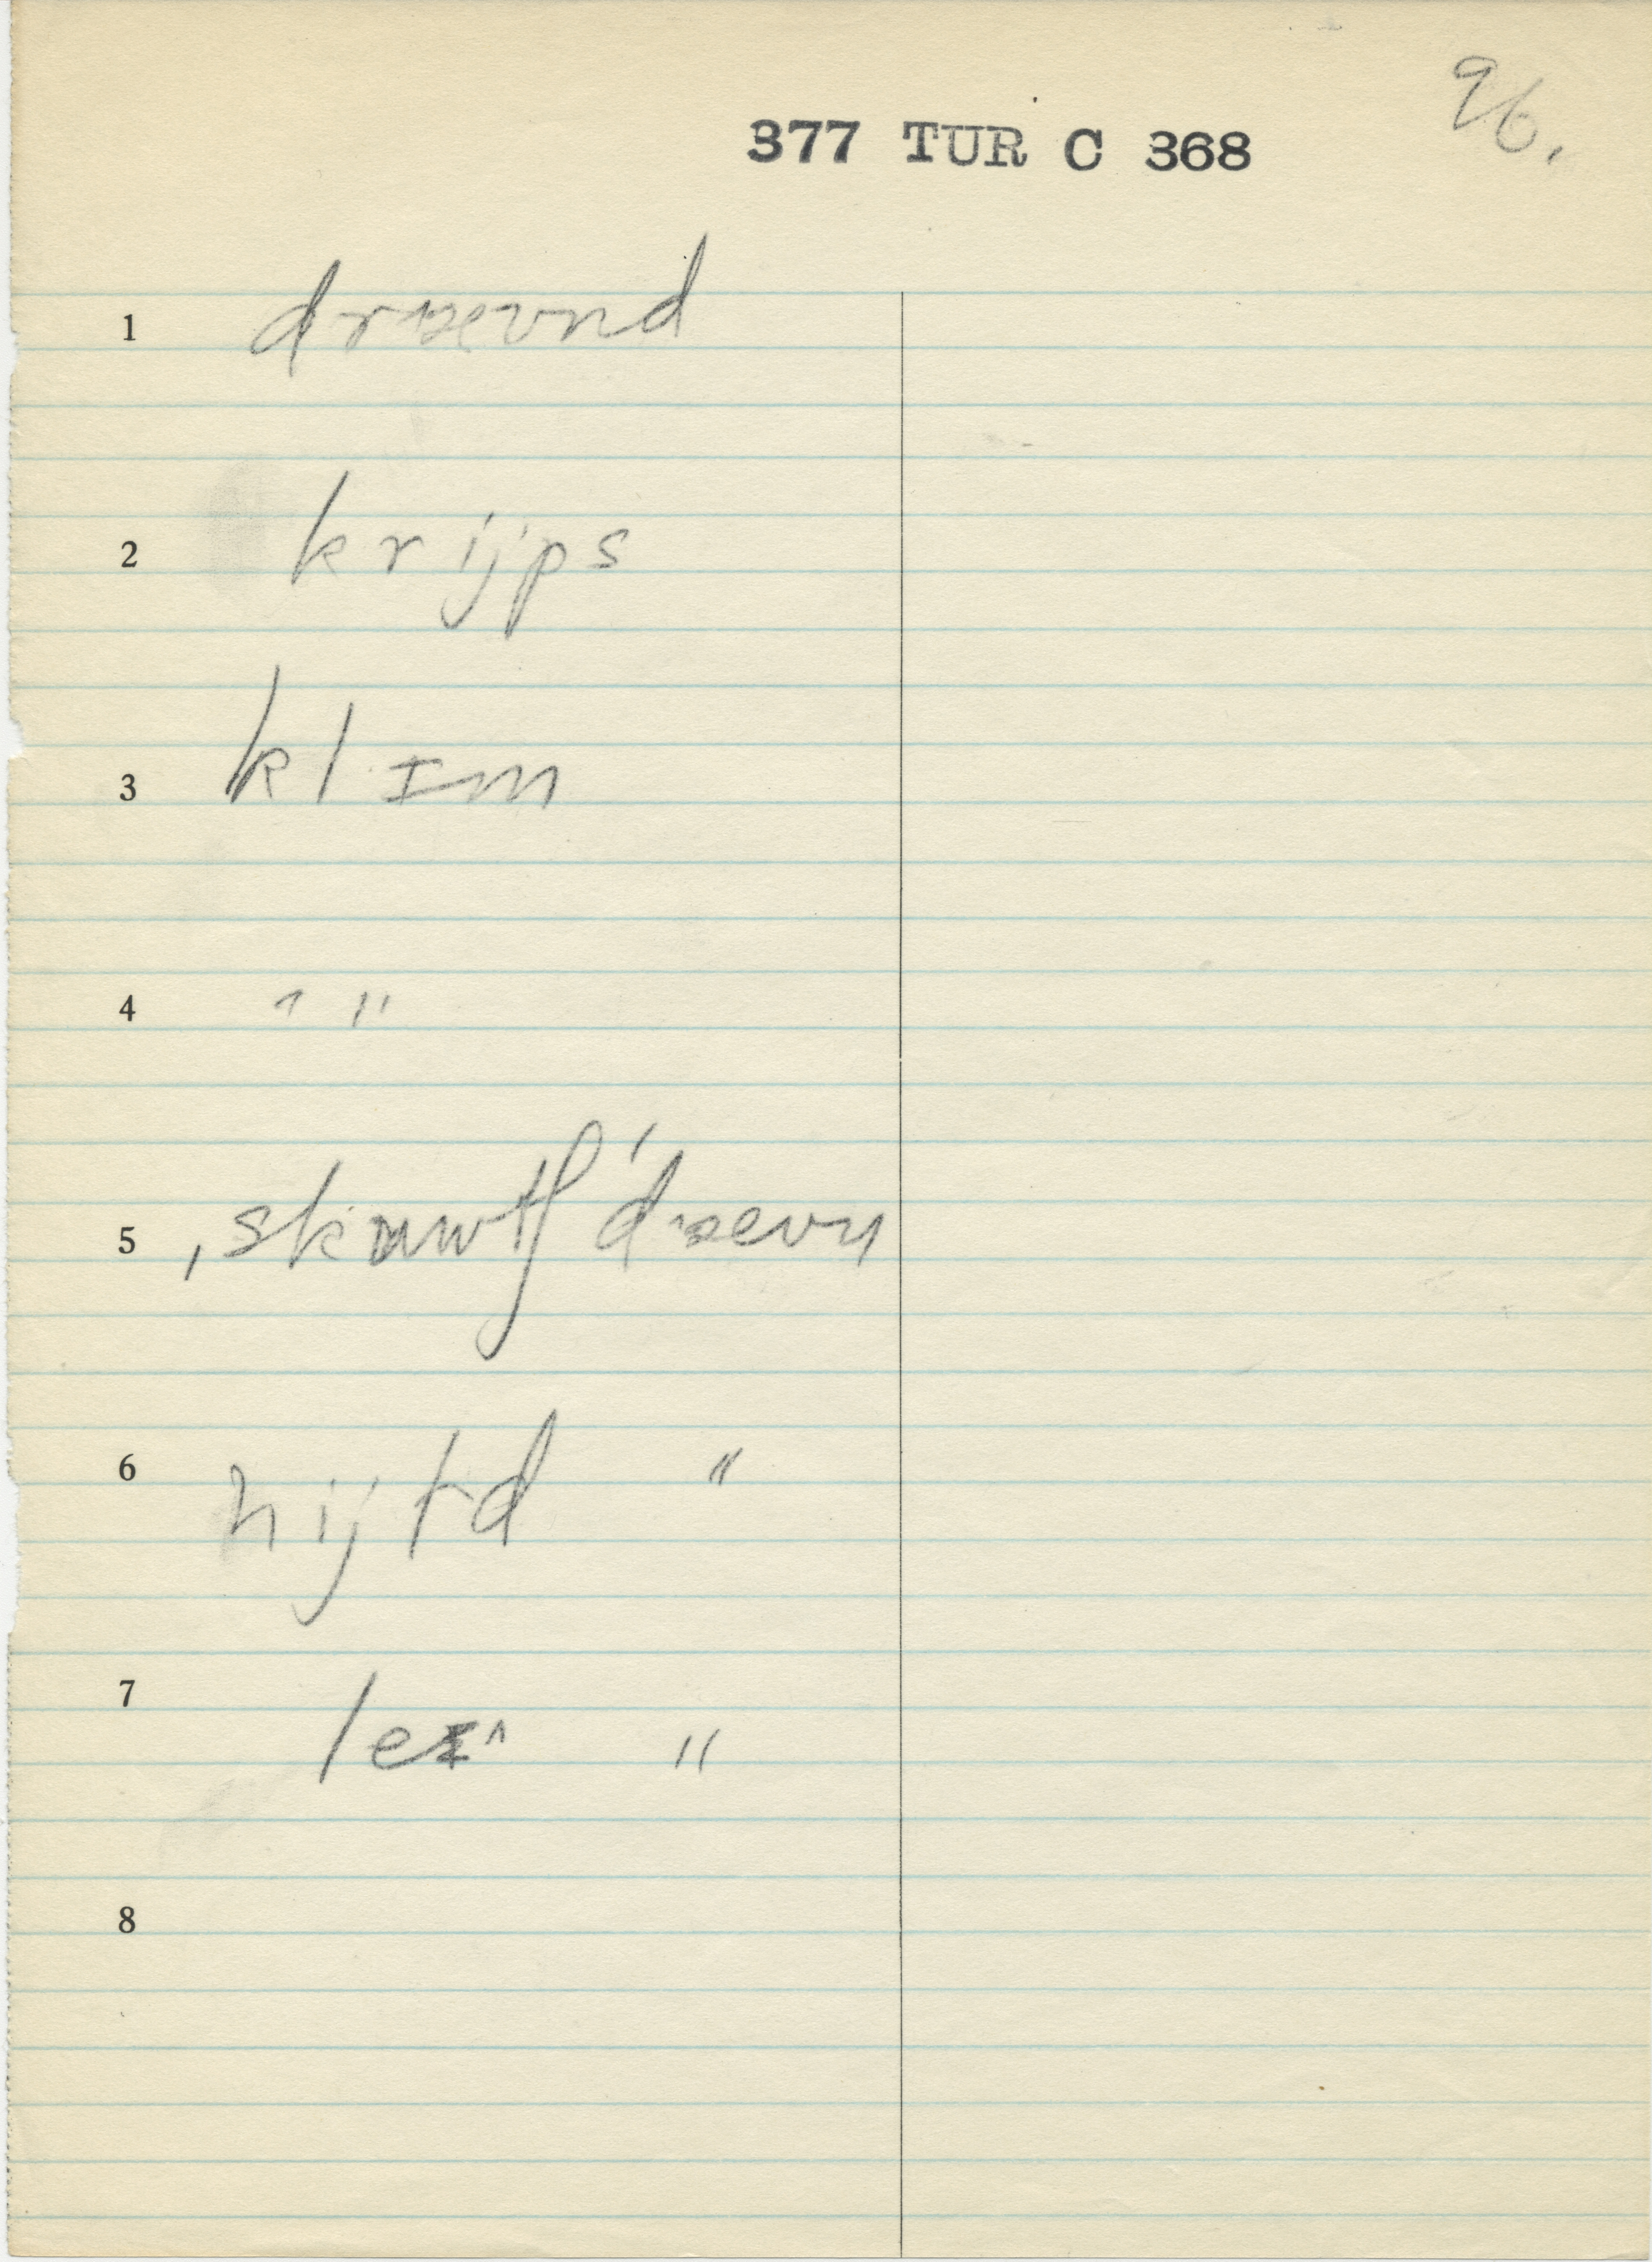 96.
377 TUR C 368
1 dræevnd
2 krijps
3 klɪm
4 ˄ "
5 ˌskrawtʃ ˈdraevn
6 nijtd "
7 leɪ^ "
8